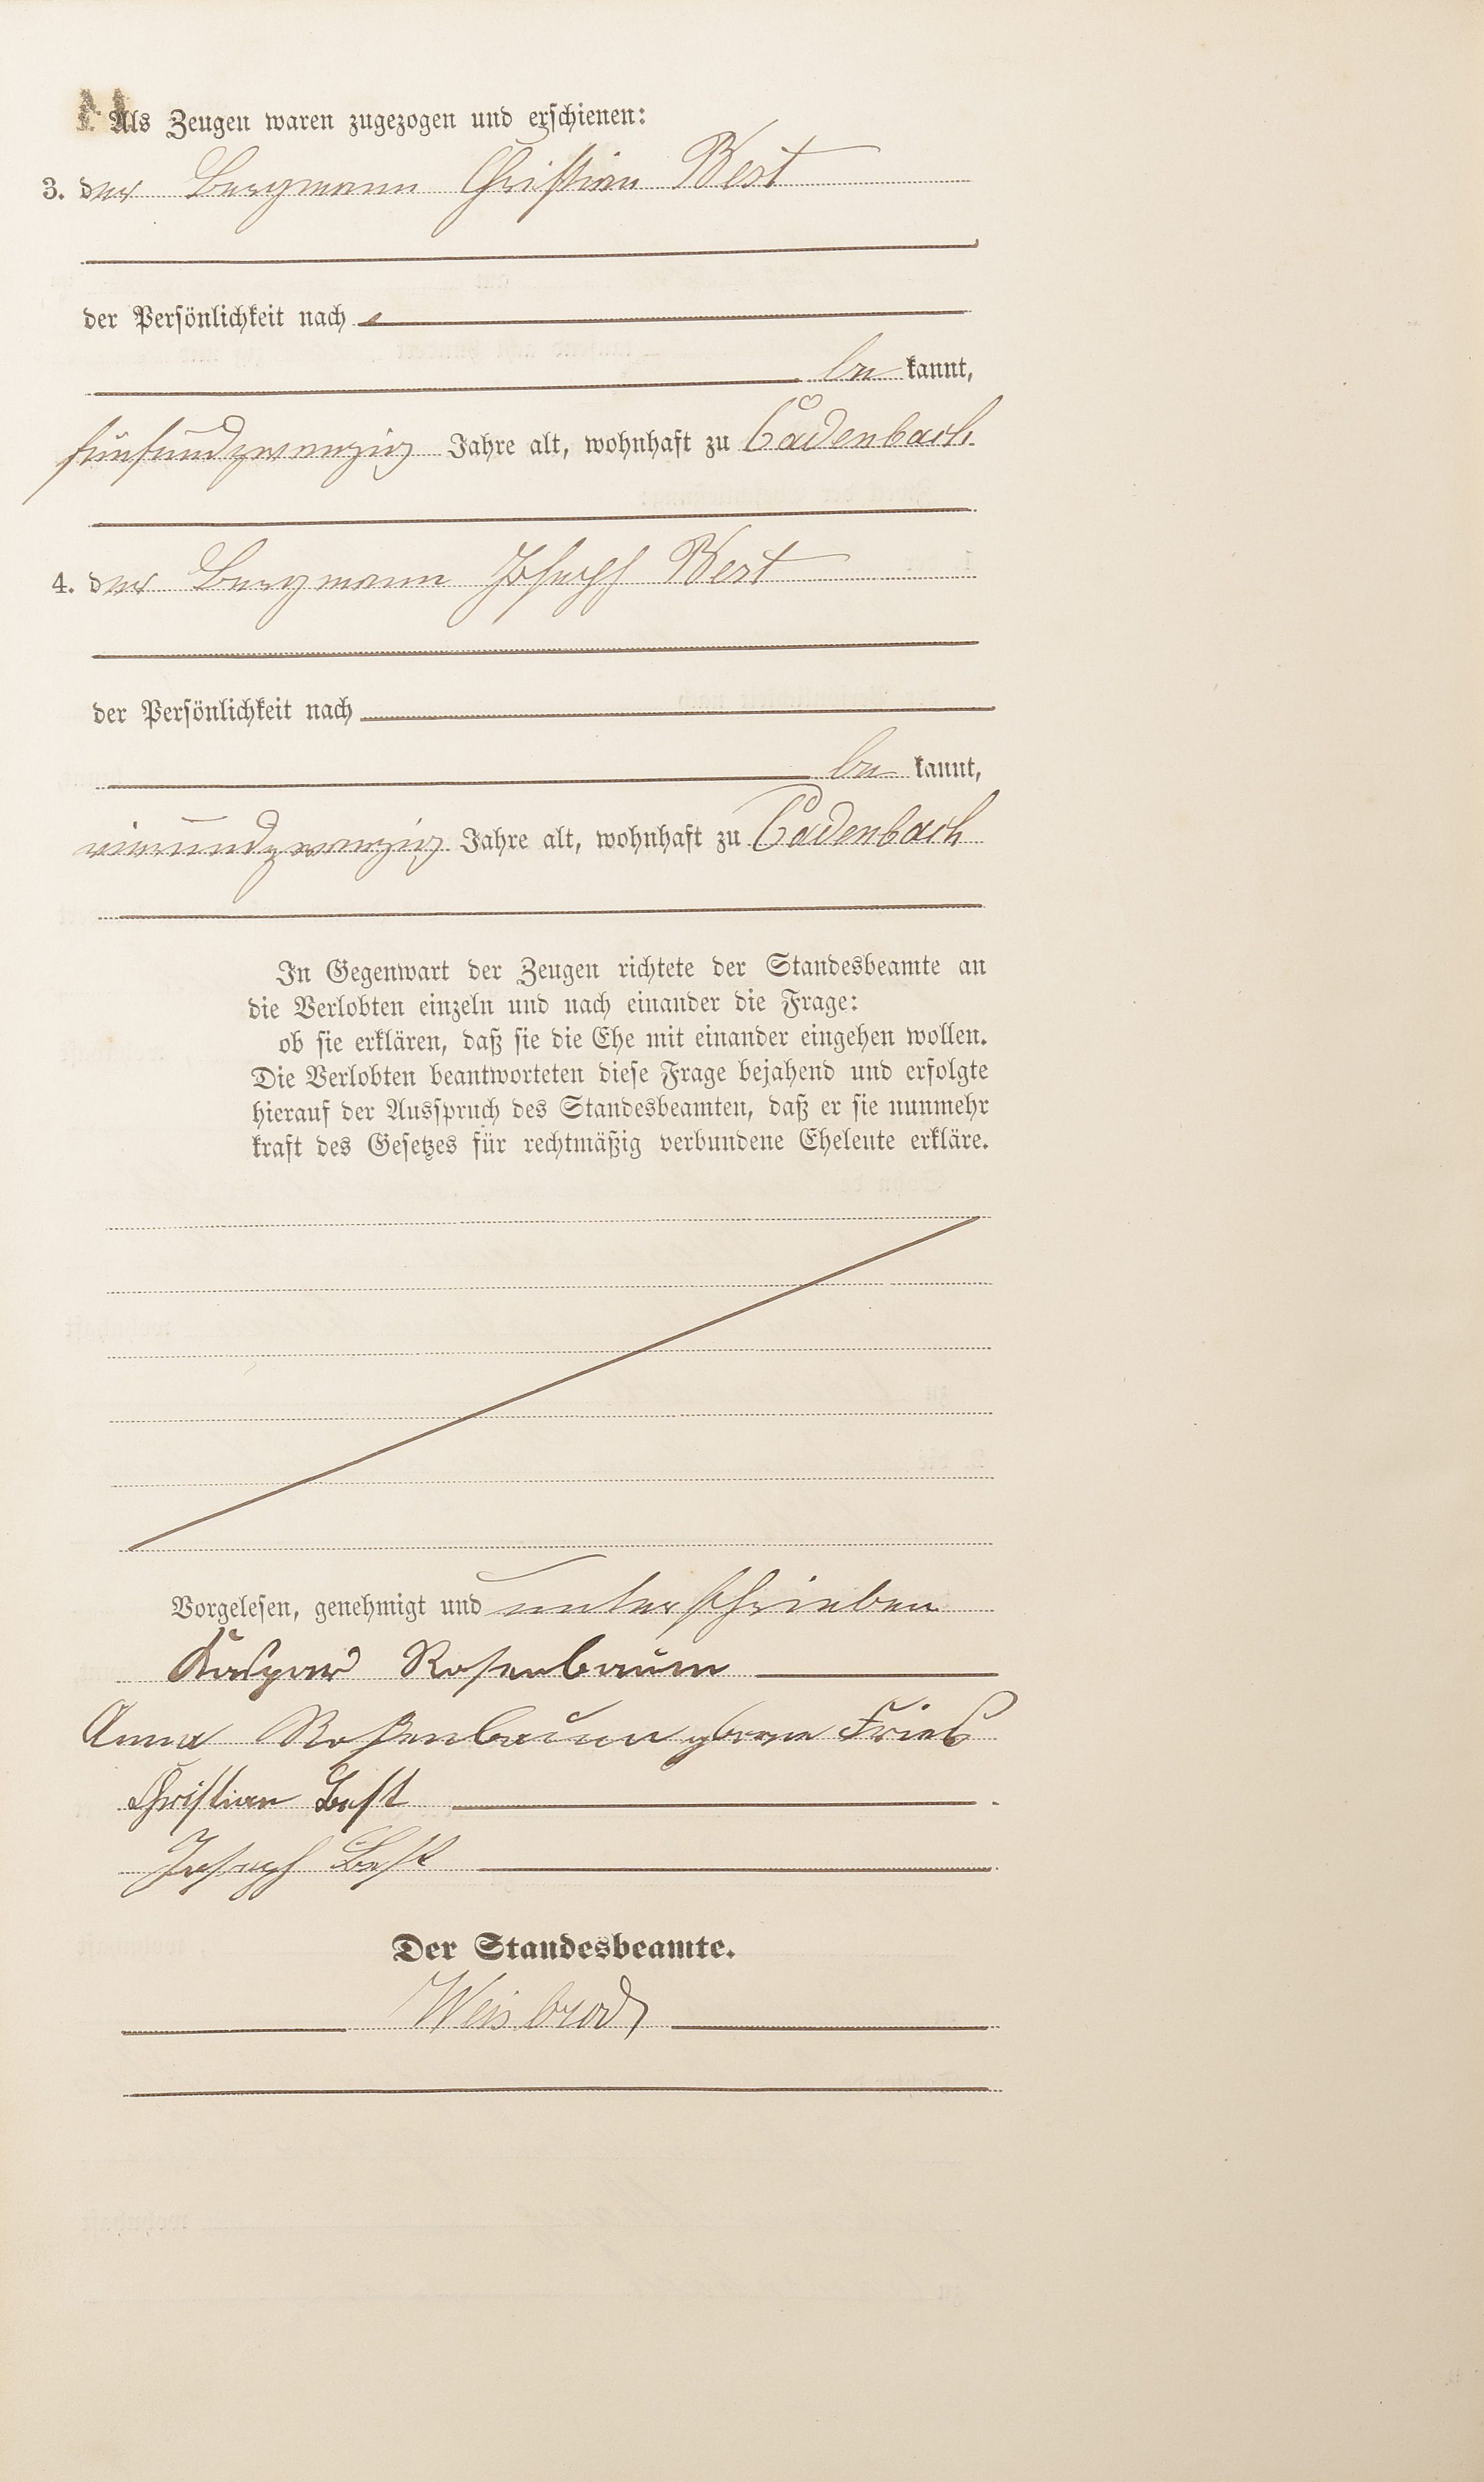 Als Zeugen waren zugezogen und erschienen:
3. der Bergmann Christian Best
der Persönlichkeit nach
be kannt,
fünfundzwanzig Jahre alt, wohnhaft zu Cadenbach
4. der Bergmann Joseph Best
der Persönlichkeit nach
be kannt,
vierundzwanzig Jahre alt, wohnhaft zu Cadenbach
In Gegenwart der Zeugen richtete der Standesbeamte an
die Verlobten einzeln und nach einander die Frage:
ob sie erklären, daß sie die Ehe mit einander eingehen wollen.
Die Verlobten beantworteten diese Frage bejahend und erfolgte
hierauf der Ausspruch des Standesbeamten, daß er sie nunmehr
kraft des Gesetzes für rechtmäßig verbundene Eheleute erkläre.
Vorgelesen, genehmigt und unterschrieben
Kaspar Rosenbaum
Anna Rosenbaum geborne Fries
Christian Best
Joseph Best
Der Standesbeamte.
Weisbrod